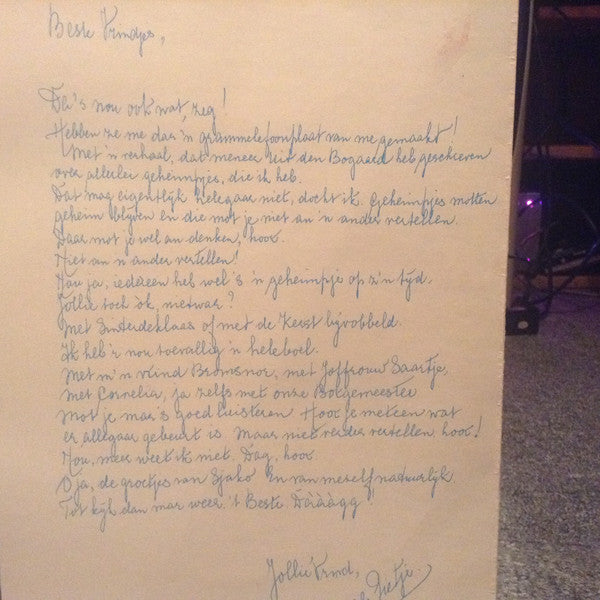 Beste Vrindjes,
Da's nou ook wat, zeg!
Hebben ze me daar 'n grammelefoonplaat van me gemaakt!
Met 'n verhaal, dat meneer uit den Bogaard heb geschreven
over allerlei geheimpjes, die ik heb.
Dat mag eigentlijk helegaar niet, docht ik. Geheimpjes motten
geheim blijven en die mot je niet an 'n ander vertellen.
Daar mot je wel an denken, hoor.
Niet an 'n ander vertellen!
Nou ja, iedereen heb wel 's 'n geheimpje op z'n tijd.
Jollie toch òk, nietwaar?
Met Sinterdeklaas of met de Kerst bijvobbeld.
Ik heb 'r nou toevallig 'n heleboel.
Met m'n vrind Bromsnor, met Joffrouw Saartje,
met Cornelia, ja zelfs met onze Borgemeester
Mot je mar 's goed luisteren Hoor je meteen wat
er allegaar gebeurt is. Maar niet verder vertellen, hoor!
Nou, meer weet ik niet. Dag, hoor.
O ja, de groetjes van Sjako En van mezelf natuurlijk
Tot kijk dan mar weer. 't Beste Dààààgg"
Jollie Vrind,
Zwietje.